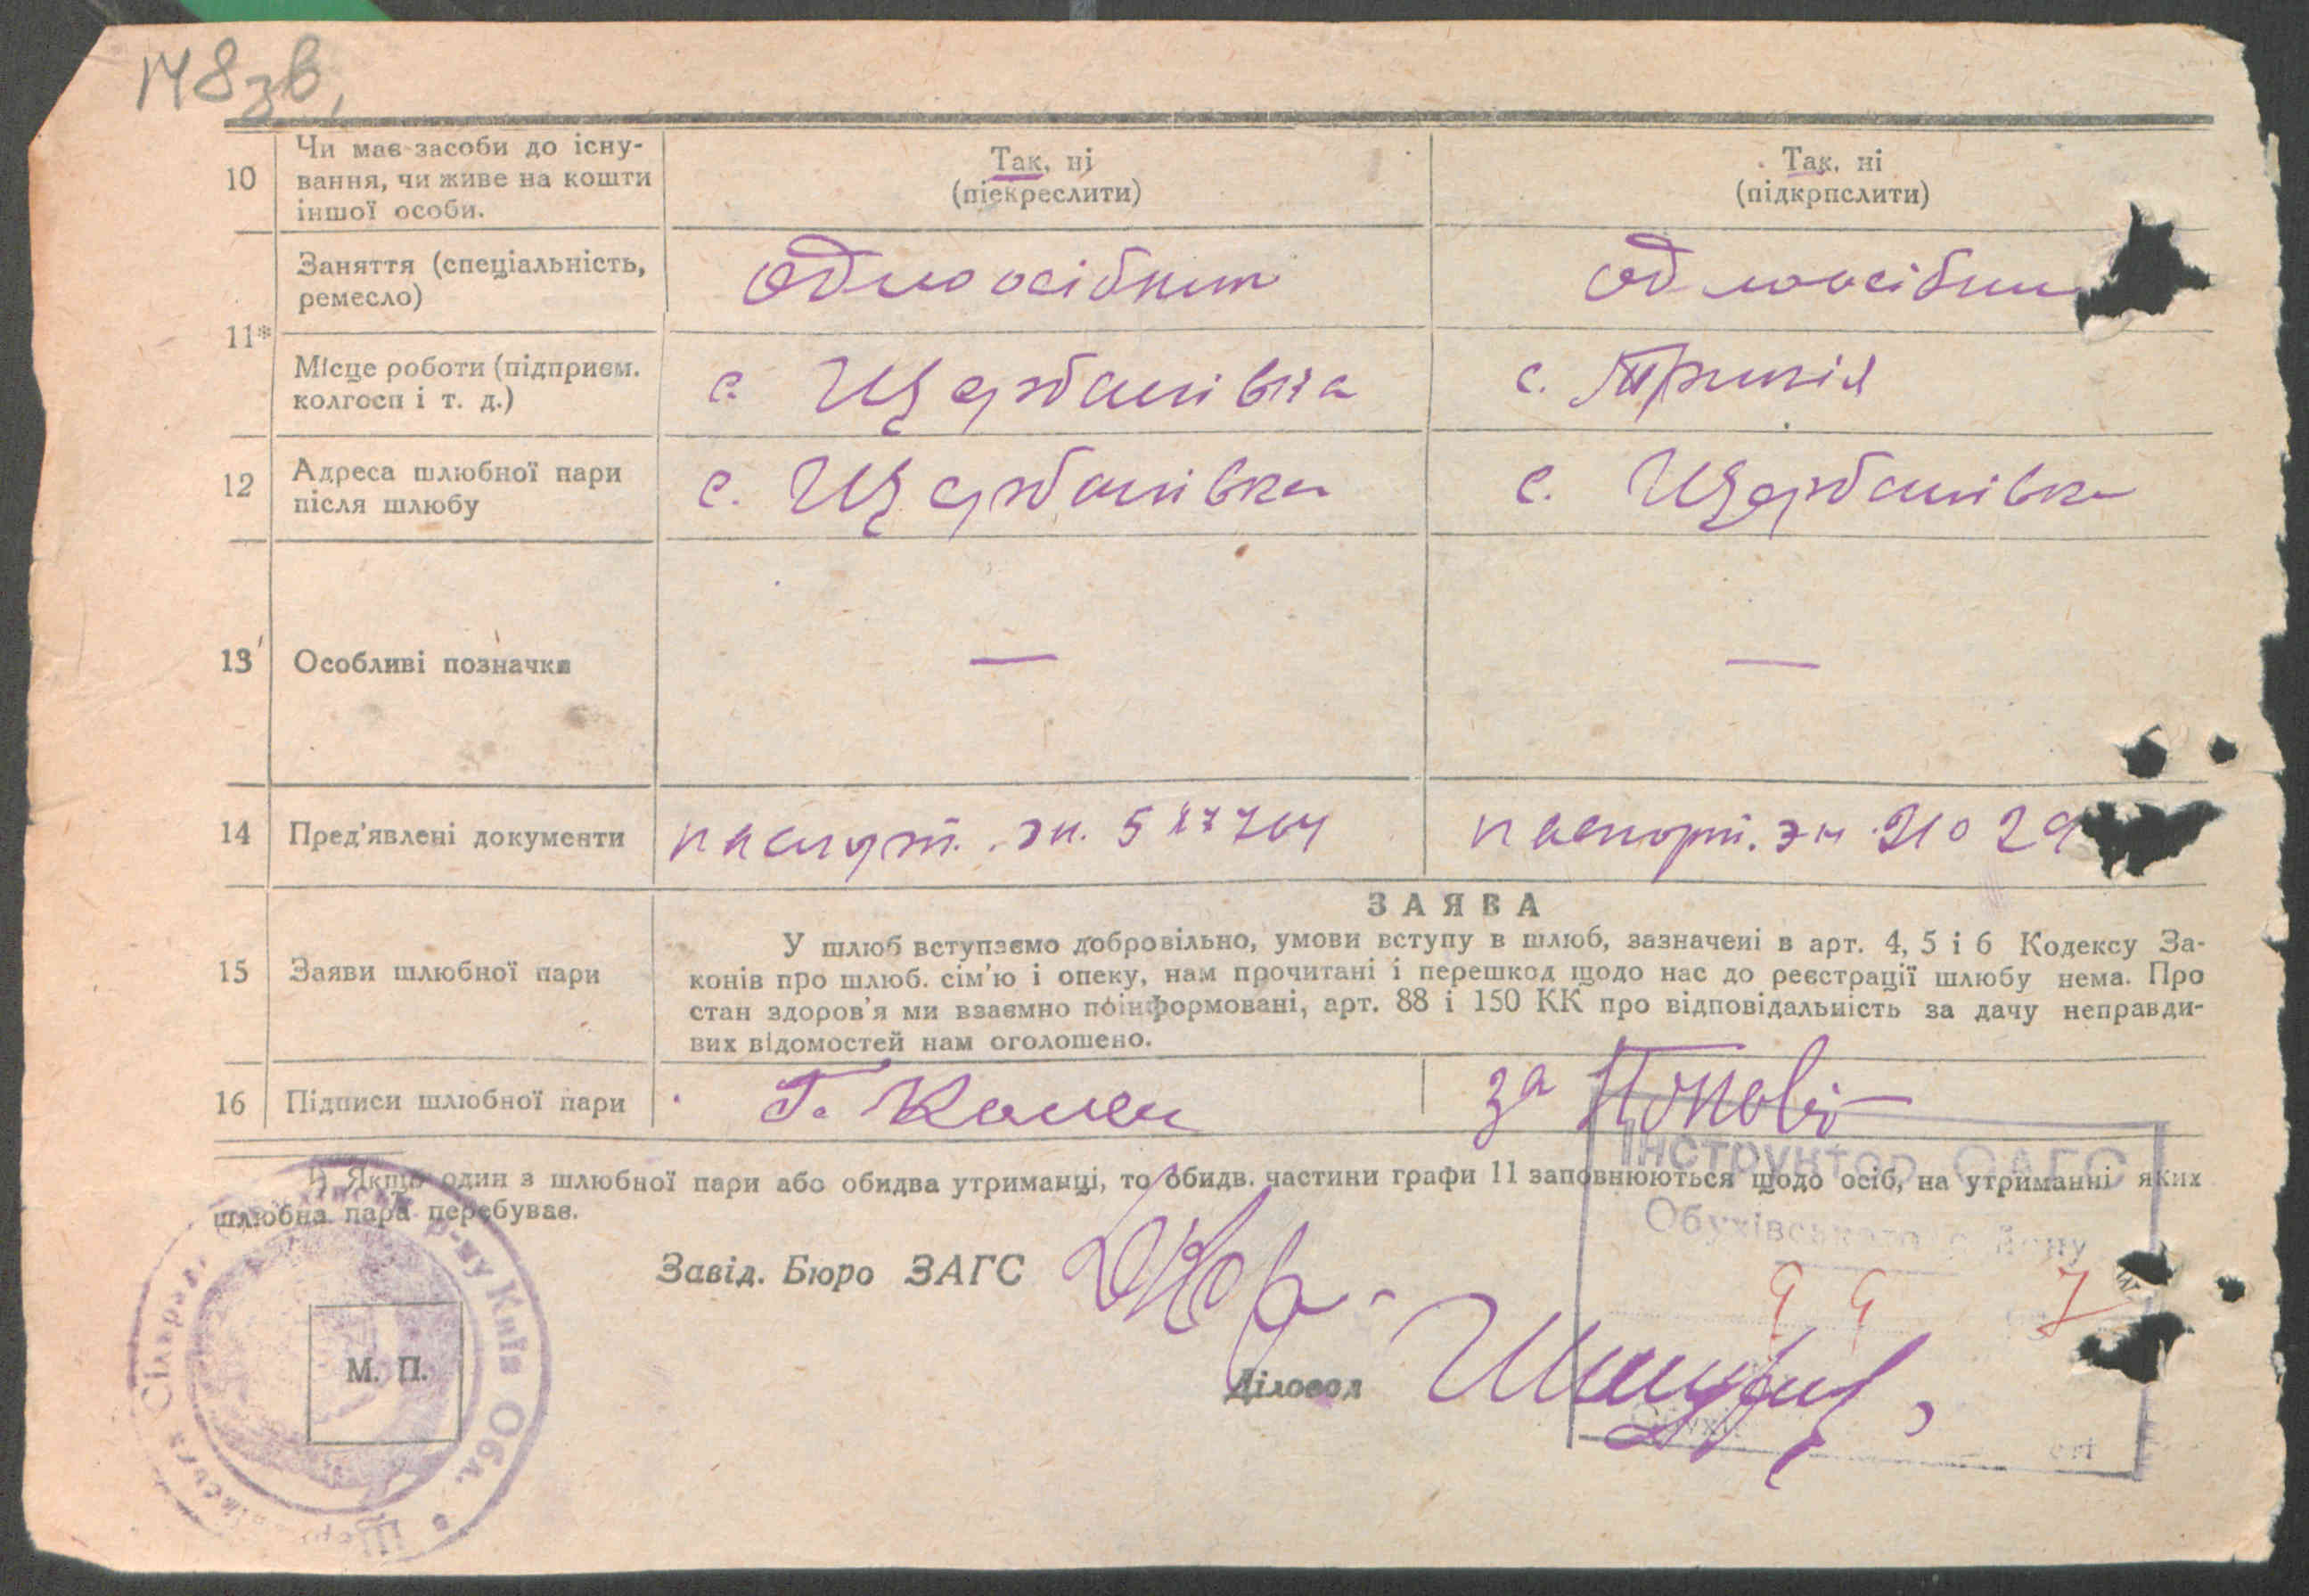 148зв,
10
Чи має засоби до існу-
вання, чи живе на кошти
іншої особи.
Так, ні
(піекреслити)
Так, ні
(підкрпслити)
11*
Заняття (спеціальність,
ремесло)
одноосібник
одноосібни
Місце роботи (підприєм.
колгосп і т. д.)
с. Щербанівка
с. Трипілля
12
Адреса шлюбної пари
після шлюбу
с. Щербанівка
с. Щербанівка
13
Особливі позначки
—
—
14
Пред'явлені документи
паспорт. эн.
паспорт. эн 21029
15
Заяви шлюбної пари
ЗАЯВА
У шлюб вступаємо добровільно, умови вступу в шлюб, зазначені в арт. 4, 5 і 6 Кодексу За-
конів про шлюб. сім'ю і опеку, нам прочитані і перешкод щодо нас до реєстрації шлюбу нема. Про
стан здоров'я ми взаємно поінформовані, арт. 88 і 150 КК про відповідальність за дачу неправди-
вих відомостей нам оголошено.
16
Підписи шлюбної пари
Г.
за
1) Якщо один з шлюбної пари або обидва утриманці, то обидв. частини графи 11 заповнюються щодо осіб, на утриманні яких
шлюбна пара перебуває.
Інструктор ОАГС
Обухівського району
9 9 7
Завід. Бюро ЗАГС
Діловод
М. П.
Сільрада
р-ну Київ Обл.